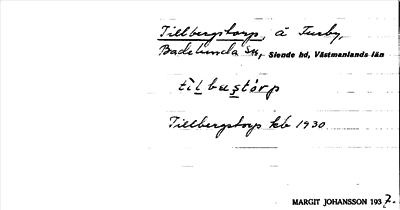 Tillbergstorp, å Tursby,
Badelunda Sn, Siende hd, Västmanlands län
tìlbaştórp
Tillbergstorp kb 1930
MARGIT JOHANSSON 1937.